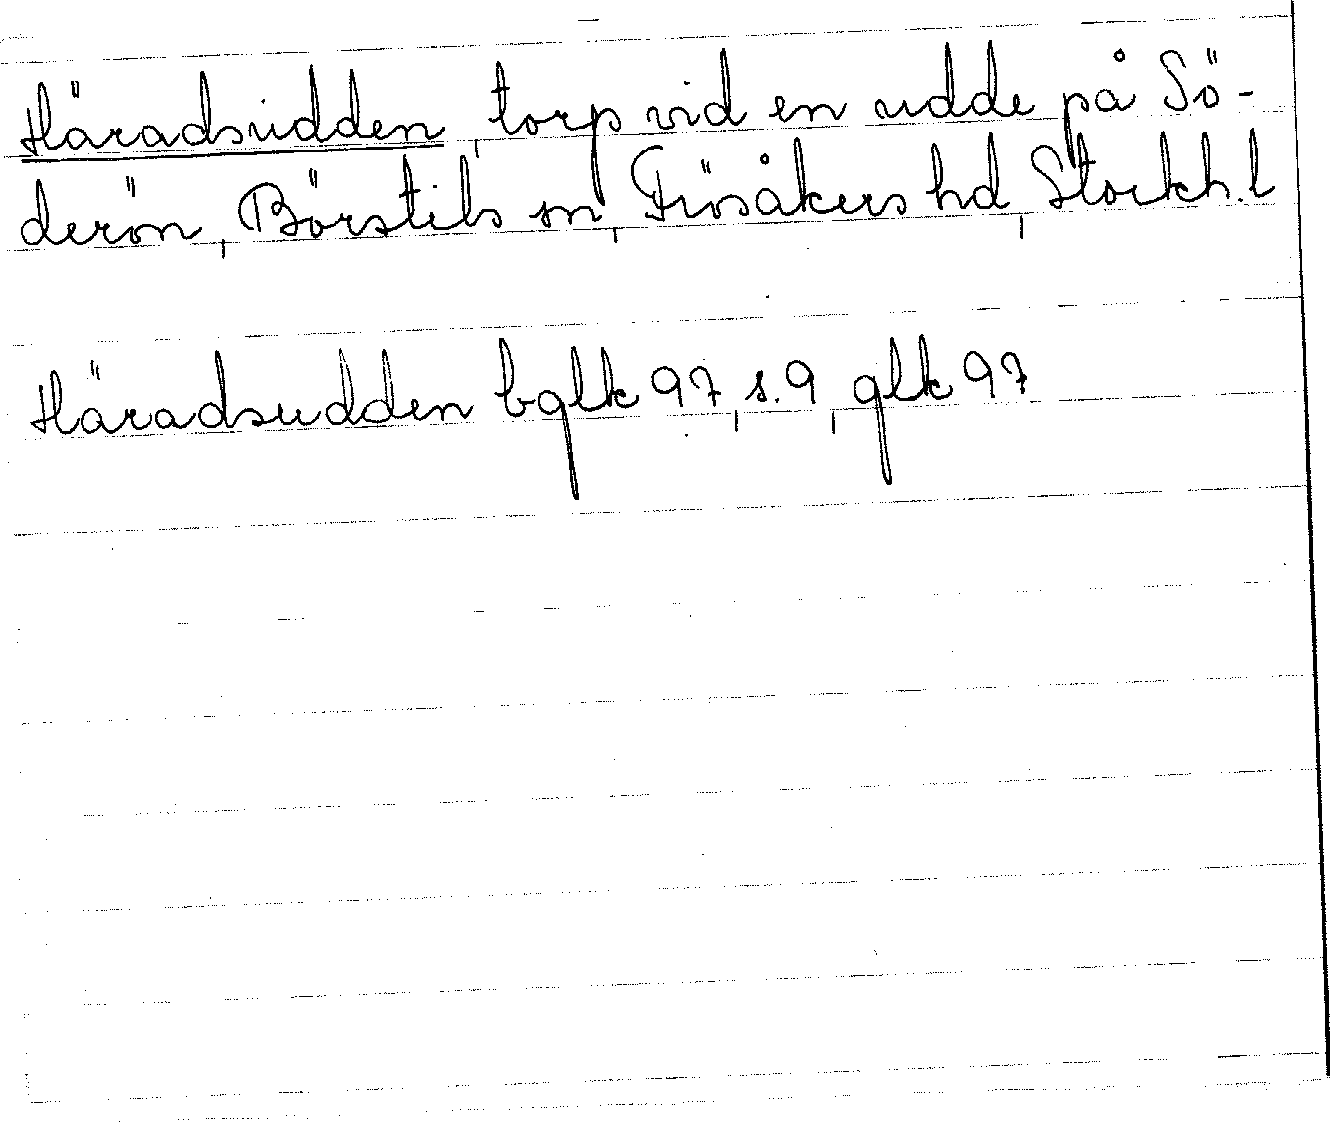 Häradsudden, torp vid en udde på Sö-
derön, Börstils sn, Frösåkers hd, Stockh. l
Häradsudden bglk 97, s. 9, glk 97